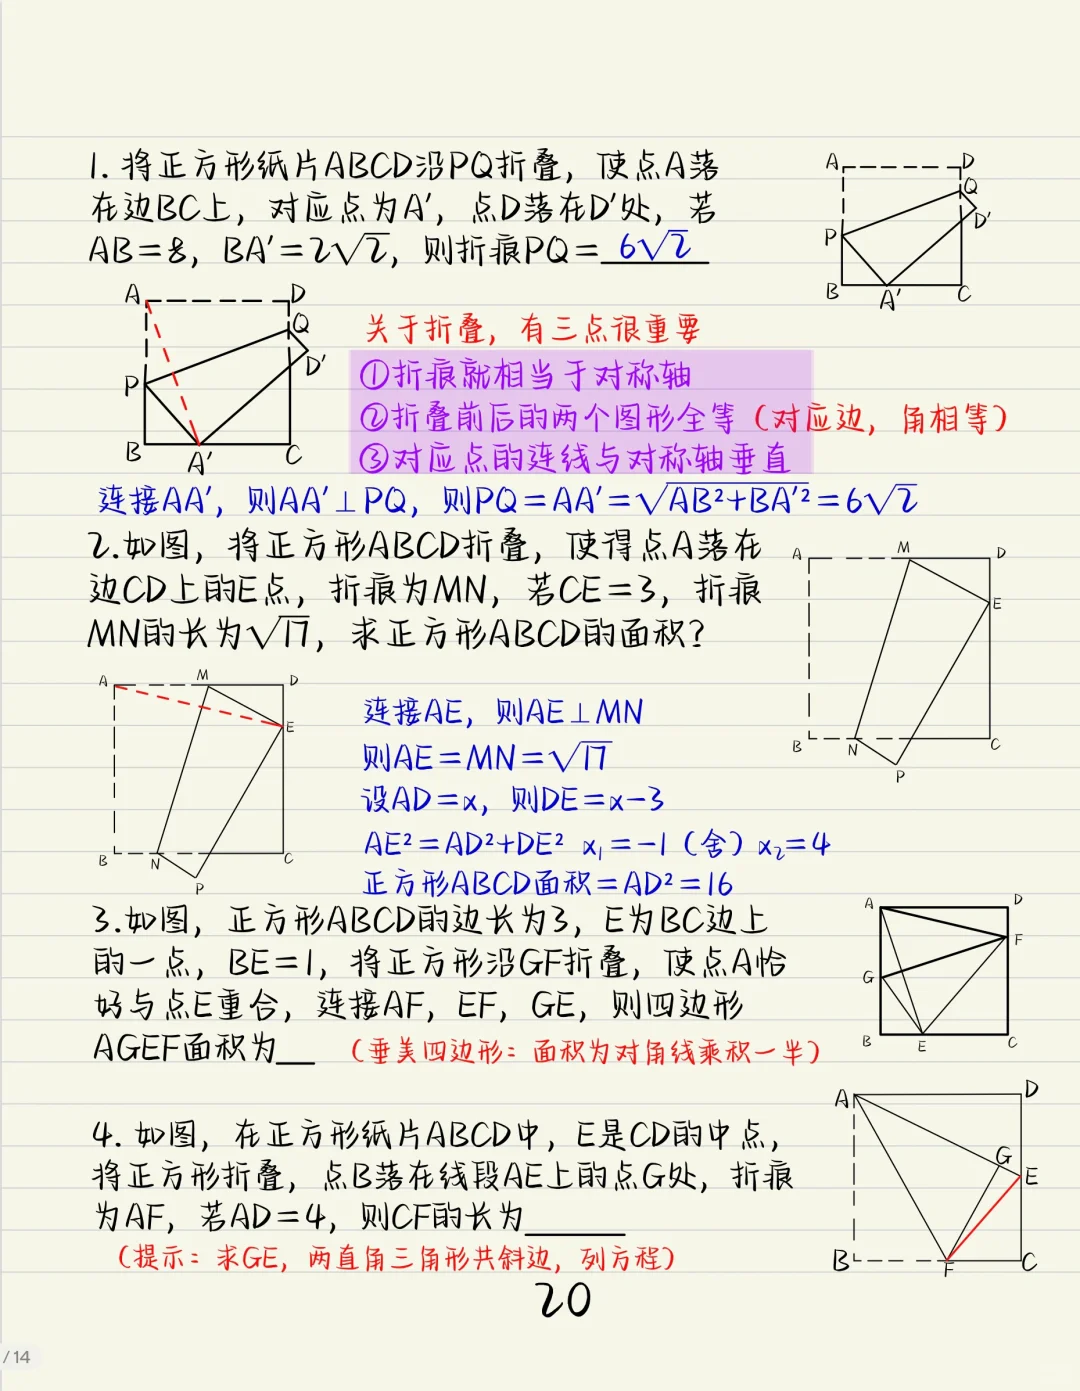 1. 将正方形纸片ABCD沿PQ折叠，使点A落
在边BC上，对应点为A′，点D落在D′处，若
AB=8，BA′=2√2，则折痕PQ=6√2
A D
Q
D′
P
B A′ C
A D
Q
D′
P
B A′ C
关于折叠，有三点很重要
①折痕就相当于对称轴
②折叠前后的两个图形全等（对应边，角相等）
③对应点的连线与对称轴垂直
连接AA′，则AA′⊥PQ，则PQ=AA′=√AB²+BA′²=6√2
2.如图，将正方形ABCD折叠，使得点A落在
边CD上的E点，折痕为MN，若CE=3，折痕
MN的长为√17，求正方形ABCD的面积？
A M D
E
B N C
P
A M D
E
B N C
P
连接AE，则AE⊥MN
则AE=MN=√17
设AD=x，则DE=x-3
AE²=AD²+DE² x₁=-1（舍）x₂=4
正方形ABCD面积=AD²=16
3.如图，正方形ABCD的边长为3，E为BC边上
的一点，BE=1，将正方形沿GF折叠，使点A恰
好与点E重合，连接AF，EF，GE，则四边形
AGEF面积为__（垂美四边形：面积为对角线乘积一半）
A D
F
G
B E C
4. 如图，在正方形纸片ABCD中，E是CD的中点，
将正方形折叠，点B落在线段AE上的点G处，折痕
为AF，若AD=4，则CF的长为____
（提示：求GE，两直角三角形共斜边，列方程）
A D
G
E
B F C
20
/ 14